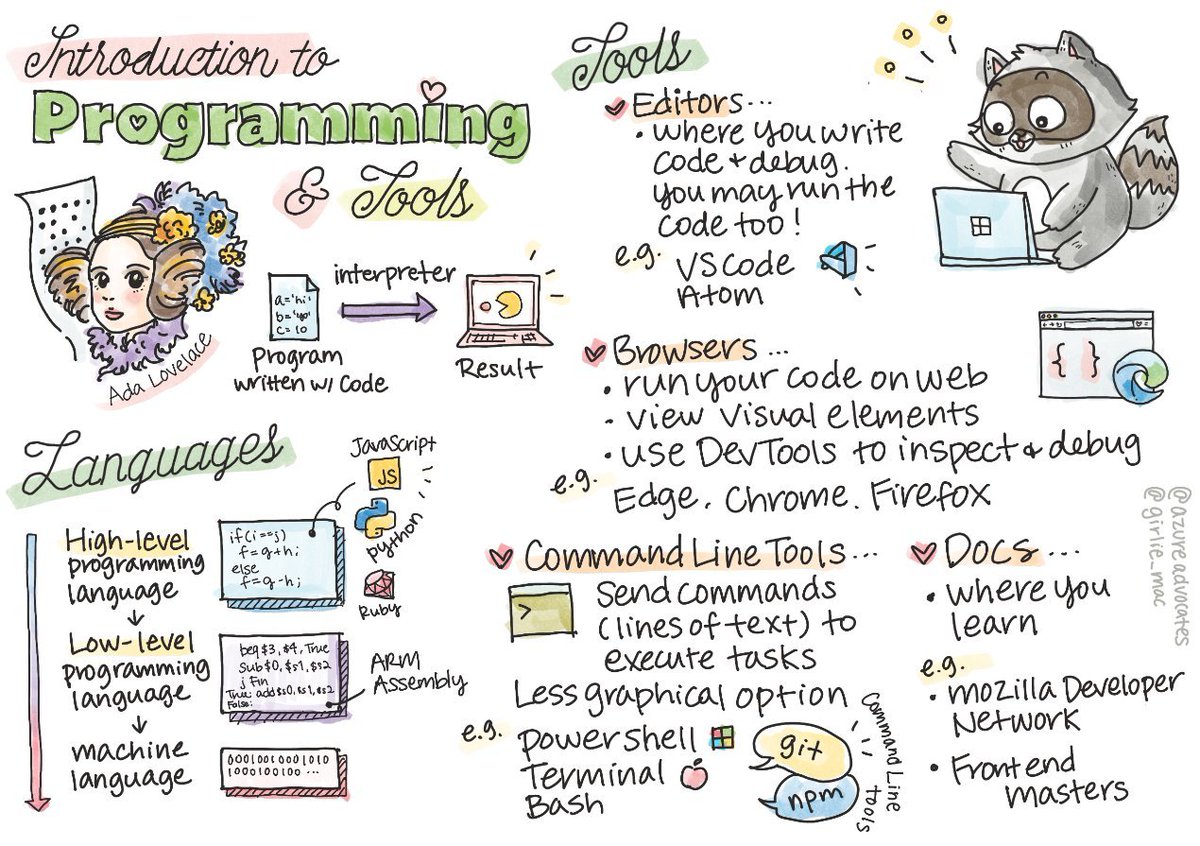 Introduction to
Programming
& Tools
Ada Lovelace
a='hi'
b='yo'
c= 10
Program
written w/ Code
interpreter
Result
Languages
High-level
programming
language
if(i==j)
f=g+h;
else
f=g-h;
JavaScript
JS
python
Ruby
Low-level
programming
language
beq $3, $4, True
Sub $0, $s1, $s2
j Fin
True: add $s0, $s1, $s2
False:
ARM
Assembly
machine
language
00010010001010
1000100100 ...
Tools
Editors...
• where you write
code + debug.
you may run the
code too!
e.g.
VS code
Atom
Browsers...
• run your code on web
• view visual elements
• use DevTools to inspect & debug
e.g.
Edge, Chrome, Firefox
Command Line Tools...
>
Send commands
(lines of text) to
execute tasks
Less graphical option
e.g.
powershell
Terminal
Bash
git
npm
Command Line
tools
Docs...
• where you
learn
e.g.
• mozilla Developer
Network
• Frontend
masters
{ }
@azureadvocates
@girlie_mac